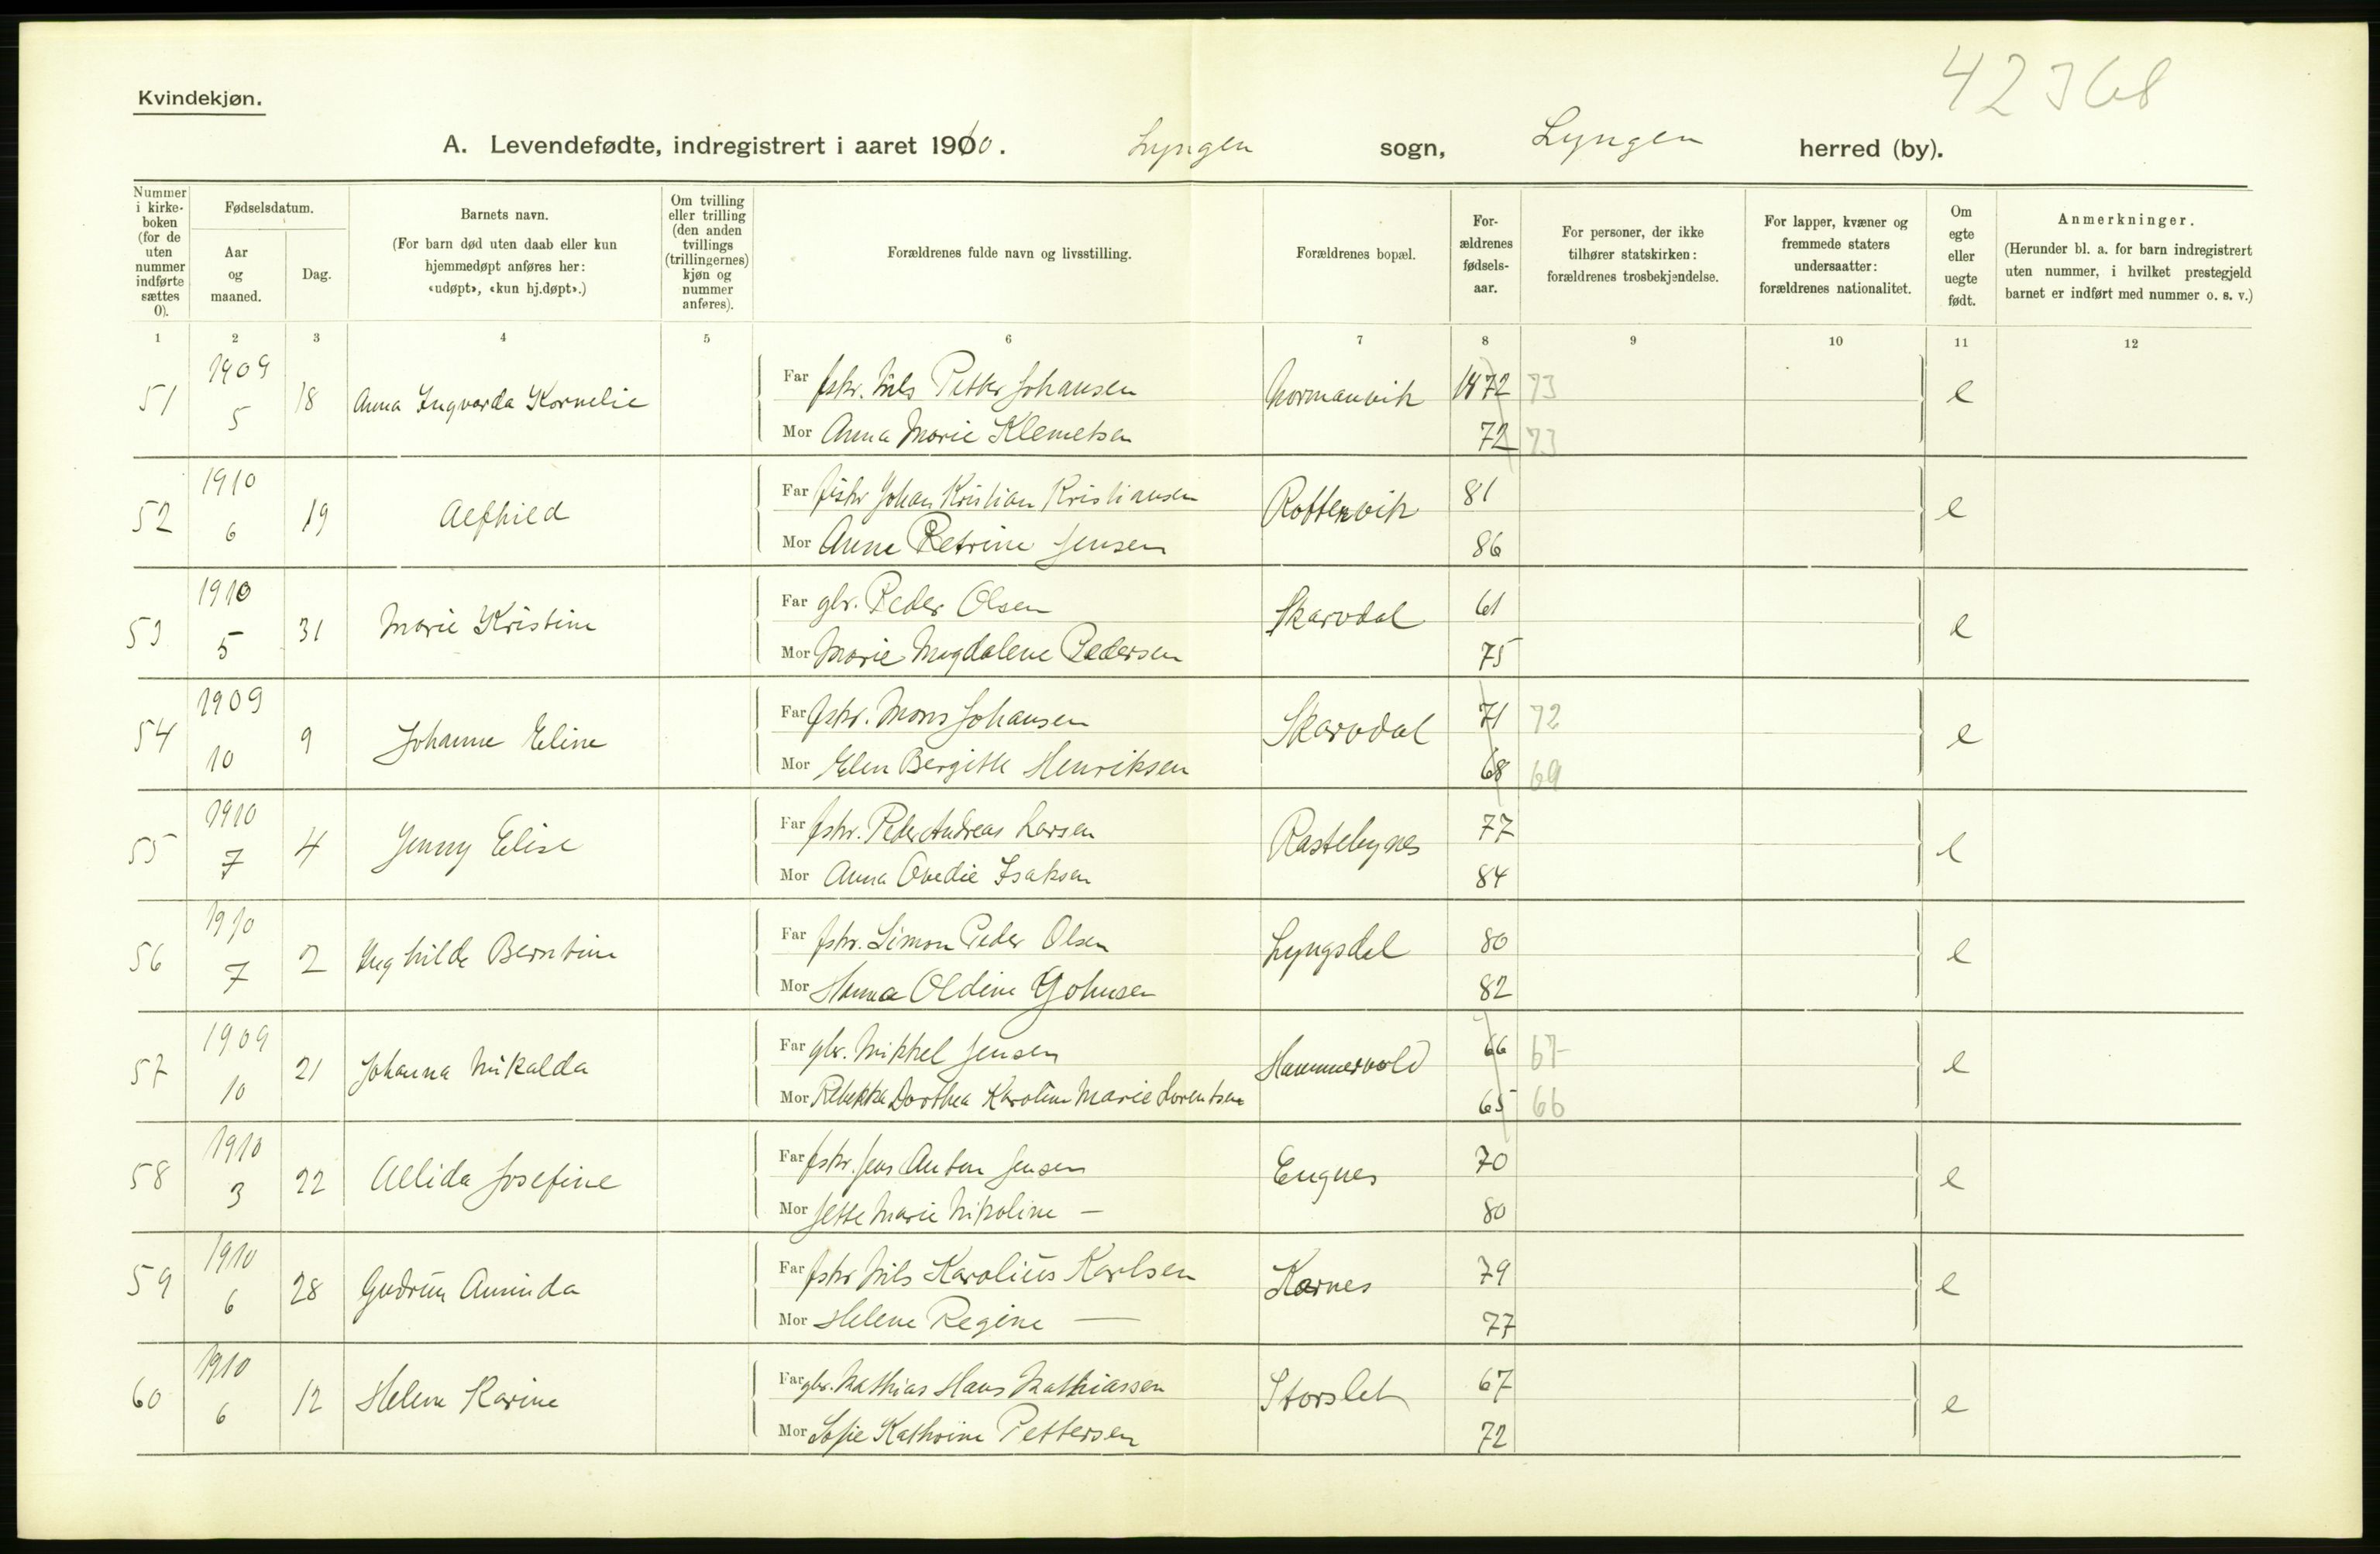 42368
Kvindekjøn.
A. Levendefødte, indregistrert i aaret 1910. Lyngen sogn, Lyngen herred (by).
Nummer i kirkeboken (for de uten nummer indførte sættes 0).
Fødselsdatum.
Aar og maaned.
Dag.
Barnets navn.
(For barn død uten daab eller kun hjemmedøpt anføres her: «udøpt», «kun hj.døpt».)
Om tvilling eller trilling (den anden tvillings (trillingernes) kjøn og nummer anføres).
Forældrenes fulde navn og livsstilling.
Forældrenes bopæl.
Forældrenes fødselsaar.
For personer, der ikke tilhører statskirken: forældrenes trosbekjendelse.
For lapper, kvæner og fremmede staters undersaatter: forældrenes nationalitet.
Om egte eller uegte født.
Anmerkninger.
(Herunder bl. a. for barn indregistrert uten nummer, i hvilket prestegjeld barnet er indført med nummer o. s. v.)
1 2 3 4 5 6 7 8 9 10 11 12
51 1909 5 18 Anna Ingvarda Kornelie Far fskr. Nils Petter Johansen Normanvik 1872 73 e
Mor Anna Marie Klemetsen 72 73
52 1910 6 19 Alfhild Far fiskr Johan Kristian Kristiansen Rottenvik 81 e
Mor Anne Petrine Jensen 86
53 1910 5 31 Marie Kristine Far gbr. Peder Olsen Skarvdal 61 e
Mor Marie Magdalene Pedersen 75
54 1909 10 9 Johanne Eline Far fskr. Mons Johansen Skarvdal 71 72 e
Mor Elen Bergitte Henriksen 68 69
55 1910 7 4 Jenny Elise Far fskr. Peder Andreas Larsen Rastebynes 77 e
Mor Anna Ovedie Isaksen 84
56 1910 7 2 Inghilda Berntine Far fskr. Simon Peder Olsen Lyngsdal 80 e
Mor Hanna Oldine Johnsen 82
57 1909 10 21 Johanna Mikalda Far gbr. Mikkel Jensen Hammervold 66 67 e
Mor Rebekka Dorthea Karoline Marie Lorentsen 65 66
58 1910 3 22 Allida Josefine Far fskr. Jens Anton Jensen Engnes 70 e
Mor Jette Marie Nikoline — 80
59 1910 6 28 Gudrun Aminda Far fskr Nils Karolius Karlsen Karnes 79 e
Mor Helene Regine — 77
60 1910 6 12 Helene Karine Far gbr. Mathias Hans Mathiassen Storslet 67 e
Mor Sofie Kathrine Pettersen 72